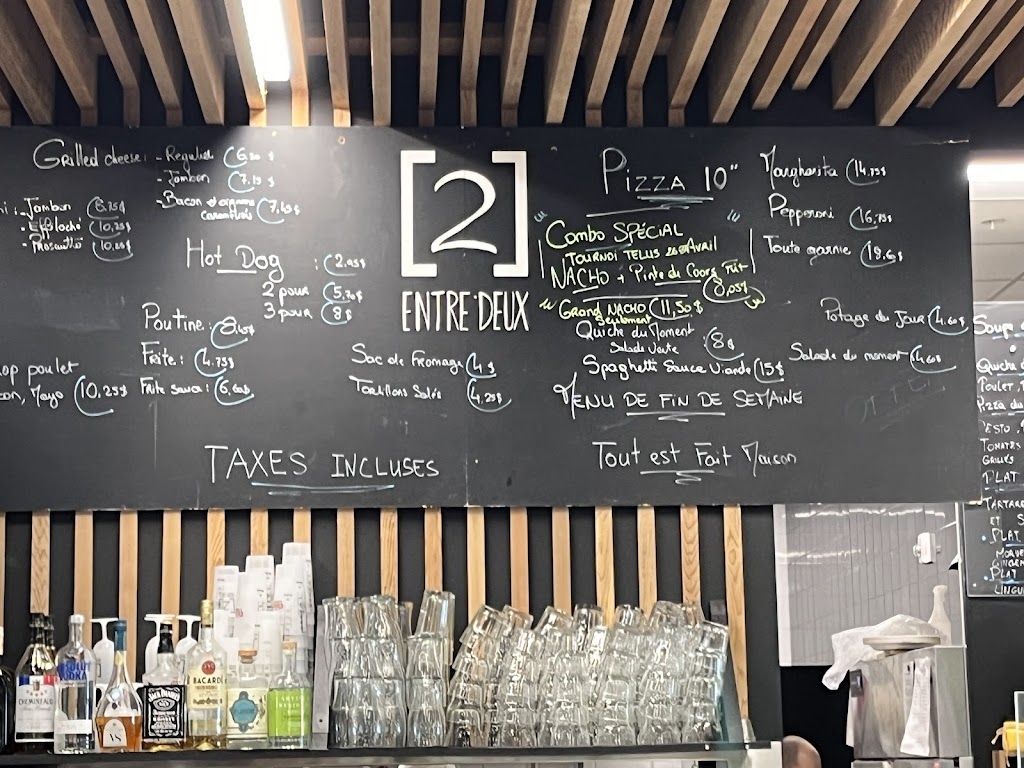 Grilled cheese: - Regulier 6,50 $
- Jambon 7,15 $
- Bacon et oignons caramélisés 7,45 $
- Jambon 8,75 $
- Effiloché 10,25 $
- Prosciutto 10,25 $
Hot Dog : 2,95 $
2 pour 5,70 $
3 pour 8 $
Poutine : 8,45 $
Frite : 4,75 $
Frite sauce : 6,60 $
poulet
Mayo 10,25 $
Sac de Fromage 4 $
Tortillons Salés 4,25 $
TAXES INCLUSES
[2]
ENTRE'DEUX
PIZZA 10"
Margherita 14,75 $
Pepperoni 16,75 $
Toute garnie
Combo SPÉCIAL
TOURNOI TELUS Avril
NACHO + Pinte de Coors
Grand NACHO 11,50 $
Seulement
Quiche du Moment : 8 $
Salade Verte
Spaghetti Sauce Viande 15 $
Potage du Jour 4,60 $
Salade du moment
MENU DE FIN DE SEMAINE
TOUT est Fait Maison
Soup
Quiche
Poulet,
Pizza du
PESTO,
TOMATES
GRILLÉS
PLAT
TARTARE
ET S
PLAT
GINGEM
PLAT
LINGU
ABSOLUT
VODKA
JACK DANIEL'S
BACARDI
VS